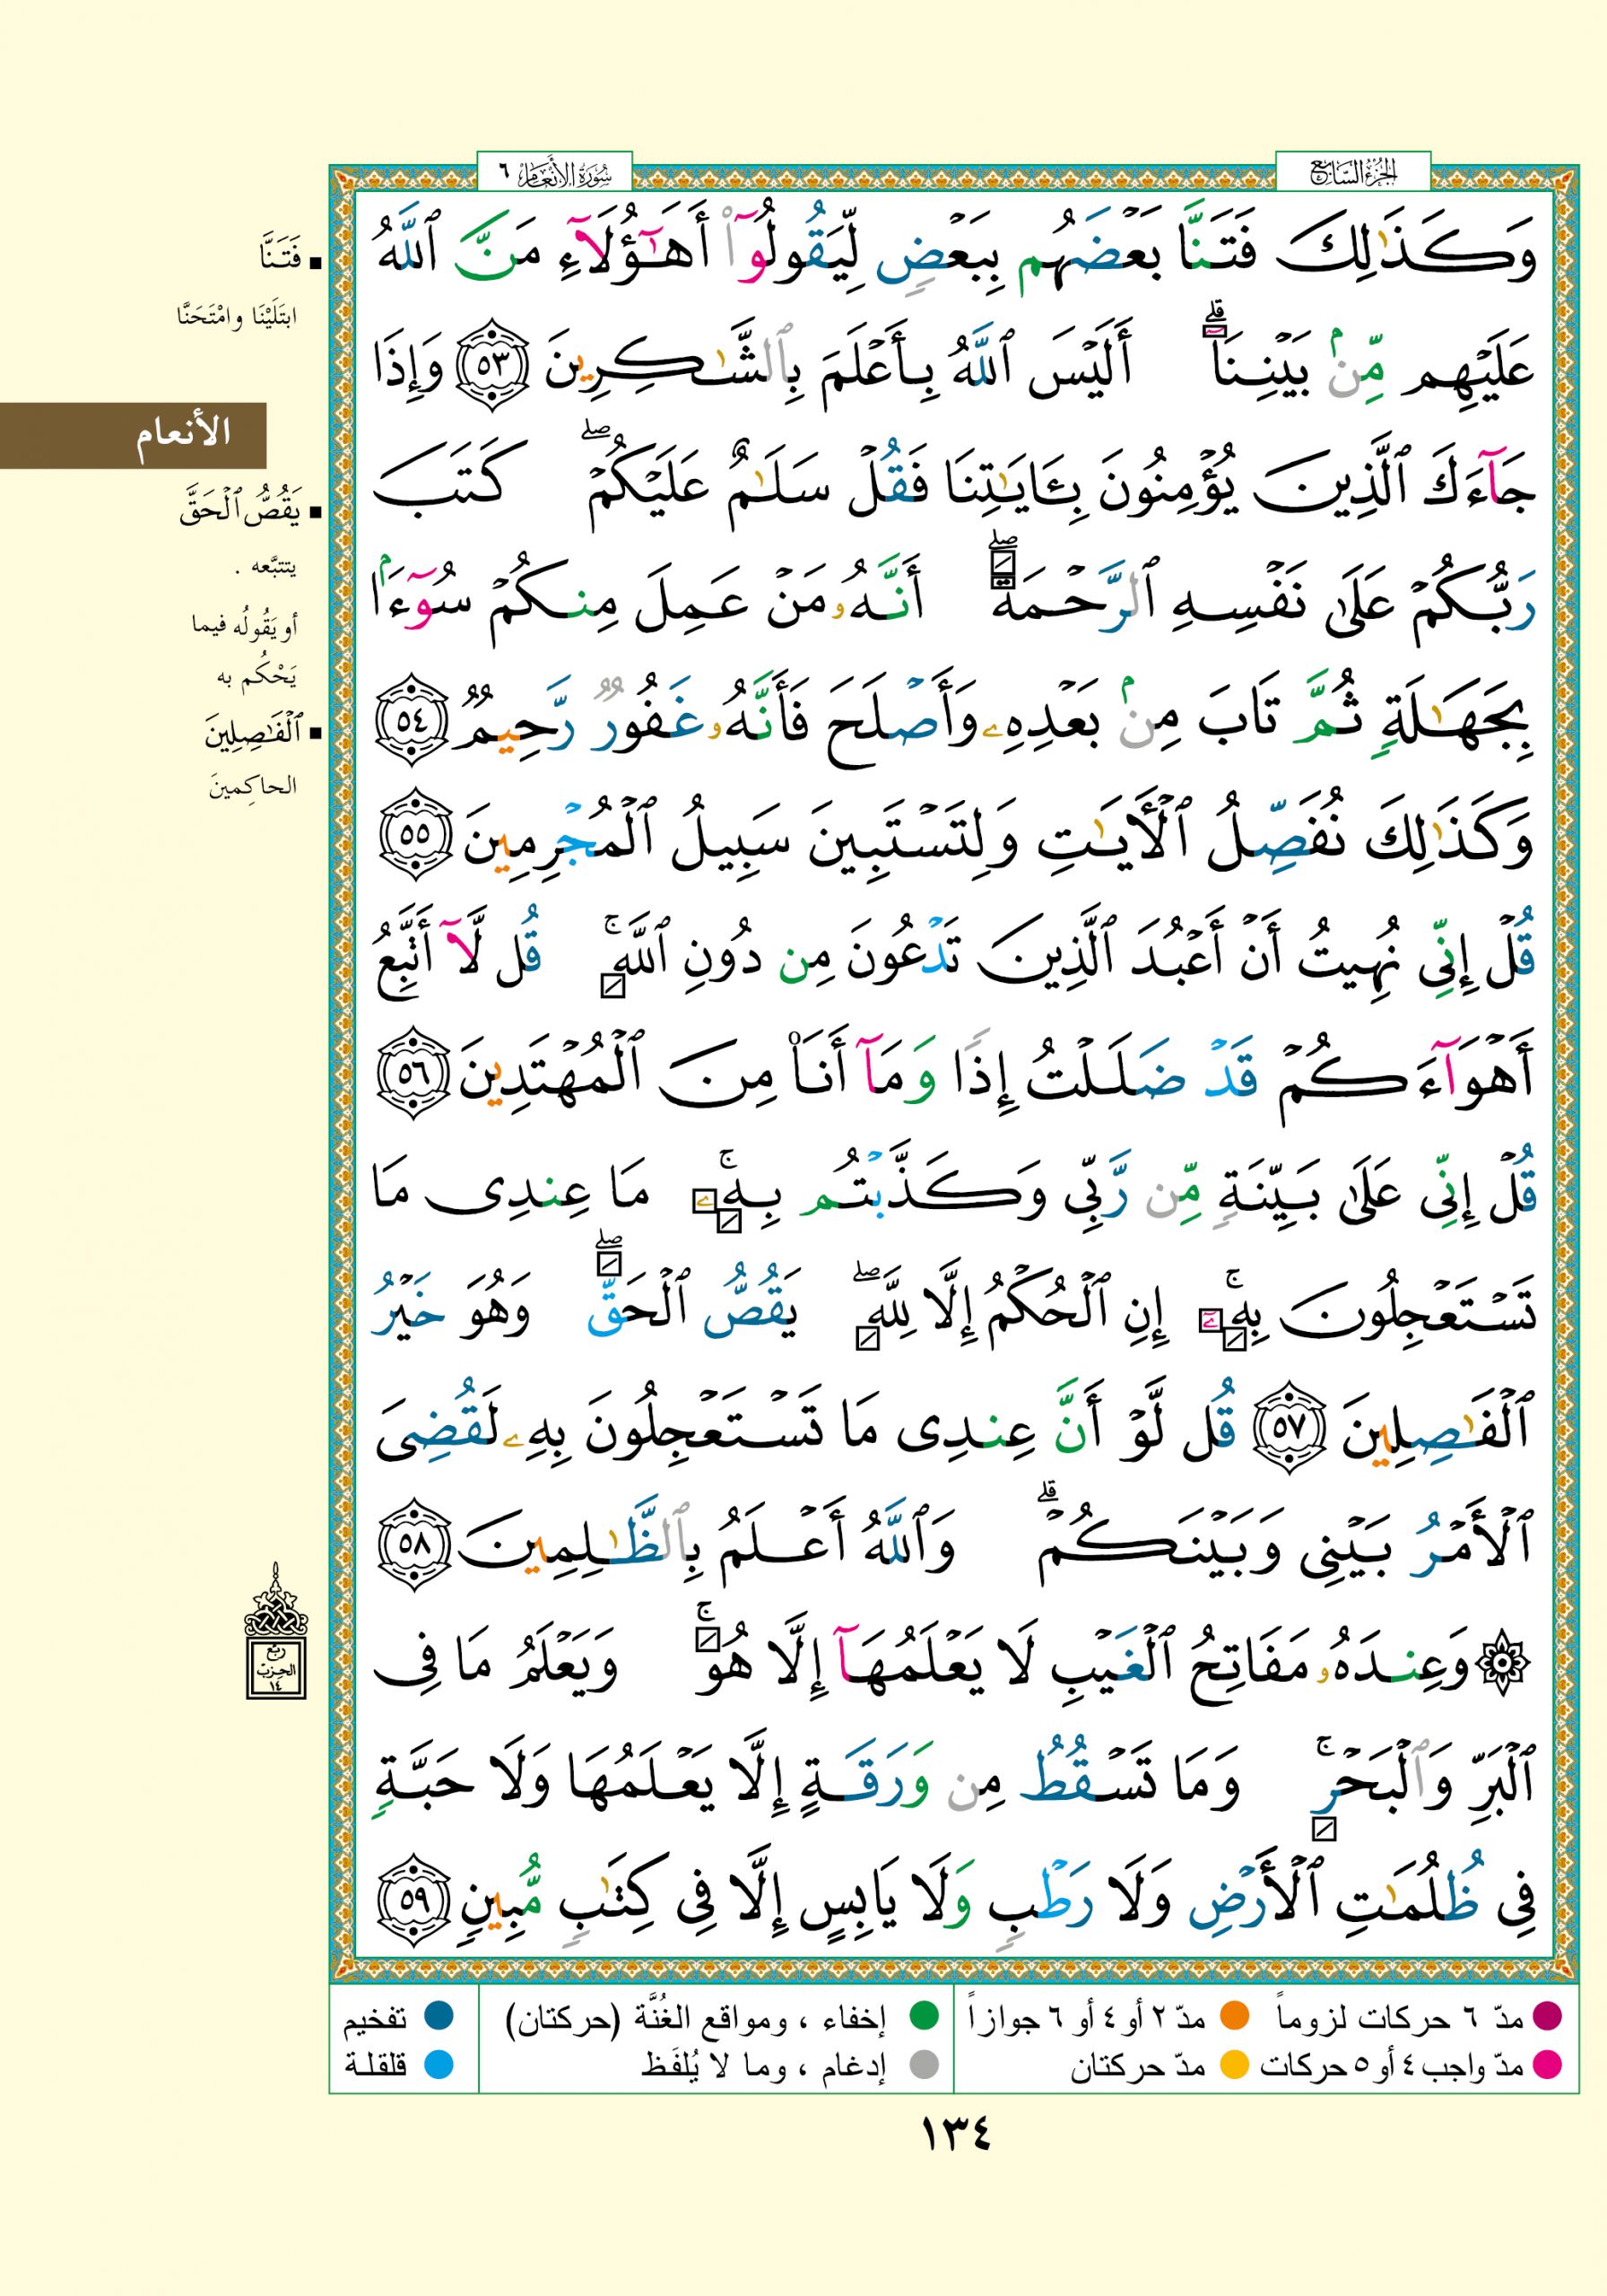 الجزء السابع
سورة الأنعام ٦
وَكَذَٰلِكَ فَتَنَّا بَعْضَهُم بِبَعْضٍ لِّيَقُولُوٓا۟ أَهَـٰٓؤُلَآءِ مَنَّ ٱللَّهُ
عَلَيْهِم مِّنۢ بَيْنِنَآ ۗ أَلَيْسَ ٱللَّهُ بِأَعْلَمَ بِٱلشَّـٰكِرِينَ ٥٣ وَإِذَا
جَآءَكَ ٱلَّذِينَ يُؤْمِنُونَ بِـَٔايَـٰتِنَا فَقُلْ سَلَـٰمٌ عَلَيْكُمْ ۖ كَتَبَ
رَبُّكُمْ عَلَىٰ نَفْسِهِ ٱلرَّحْمَةَ ۖ أَنَّهُۥ مَنْ عَمِلَ مِنكُمْ سُوٓءَۢا
بِجَهَـٰلَةٍ ثُمَّ تَابَ مِنۢ بَعْدِهِۦ وَأَصْلَحَ فَأَنَّهُۥ غَفُورٌ رَّحِيمٌ ٥٤
وَكَذَٰلِكَ نُفَصِّلُ ٱلْـَٔايَـٰتِ وَلِتَسْتَبِينَ سَبِيلُ ٱلْمُجْرِمِينَ ٥٥
قُلْ إِنِّى نُهِيتُ أَنْ أَعْبُدَ ٱلَّذِينَ تَدْعُونَ مِن دُونِ ٱللَّهِ ۚ قُل لَّآ أَتَّبِعُ
أَهْوَآءَكُمْ قَدْ ضَلَلْتُ إِذًا وَمَآ أَنَا۠ مِنَ ٱلْمُهْتَدِينَ ٥٦
قُلْ إِنِّى عَلَىٰ بَيِّنَةٍ مِّن رَّبِّى وَكَذَّبْتُم بِهِۦ ۚ مَا عِندِى مَا
تَسْتَعْجِلُونَ بِهِۦٓ ۚ إِنِ ٱلْحُكْمُ إِلَّا لِلَّهِ ۖ يَقُصُّ ٱلْحَقَّ ۖ وَهُوَ خَيْرُ
ٱلْفَـٰصِلِينَ ٥٧ قُل لَّوْ أَنَّ عِندِى مَا تَسْتَعْجِلُونَ بِهِۦ لَقُضِىَ
ٱلْأَمْرُ بَيْنِى وَبَيْنَكُمْ ۗ وَٱللَّهُ أَعْلَمُ بِٱلظَّـٰلِمِينَ ٥٨
۞ وَعِندَهُۥ مَفَاتِحُ ٱلْغَيْبِ لَا يَعْلَمُهَآ إِلَّا هُوَ ۚ وَيَعْلَمُ مَا فِى
ٱلْبَرِّ وَٱلْبَحْرِ ۚ وَمَا تَسْقُطُ مِن وَرَقَةٍ إِلَّا يَعْلَمُهَا وَلَا حَبَّةٍ
فِى ظُلُمَـٰتِ ٱلْأَرْضِ وَلَا رَطْبٍ وَلَا يَابِسٍ إِلَّا فِى كِتَـٰبٍ مُّبِينٍ ٥٩
▪ فَتَنَّا
ابتَلَيْنَا وامْتَحَنَّا
الأنعام
▪ يَقُصُّ ٱلْحَقَّ
يتتبَّعه .
أو يَقُولُه فيما
يَحْكُم به
▪ ٱلْفَـٰصِلِينَ
الحاكِمينَ
ربع
الحزب
١٤
مدّ ٦ حركات لزوماً مدّ ٢ أو ٤ أو ٦ جوازاً
مدّ واجب ٤ أو ٥ حركات مدّ حركتان
إخفاء ، ومواقع الغُنَّة (حركتان)
إدغام ، وما لا يُلفَظ
تفخيم
قلقلة
١٣٤